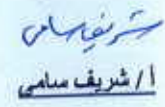 شريف سامى
أ / شريف سامى